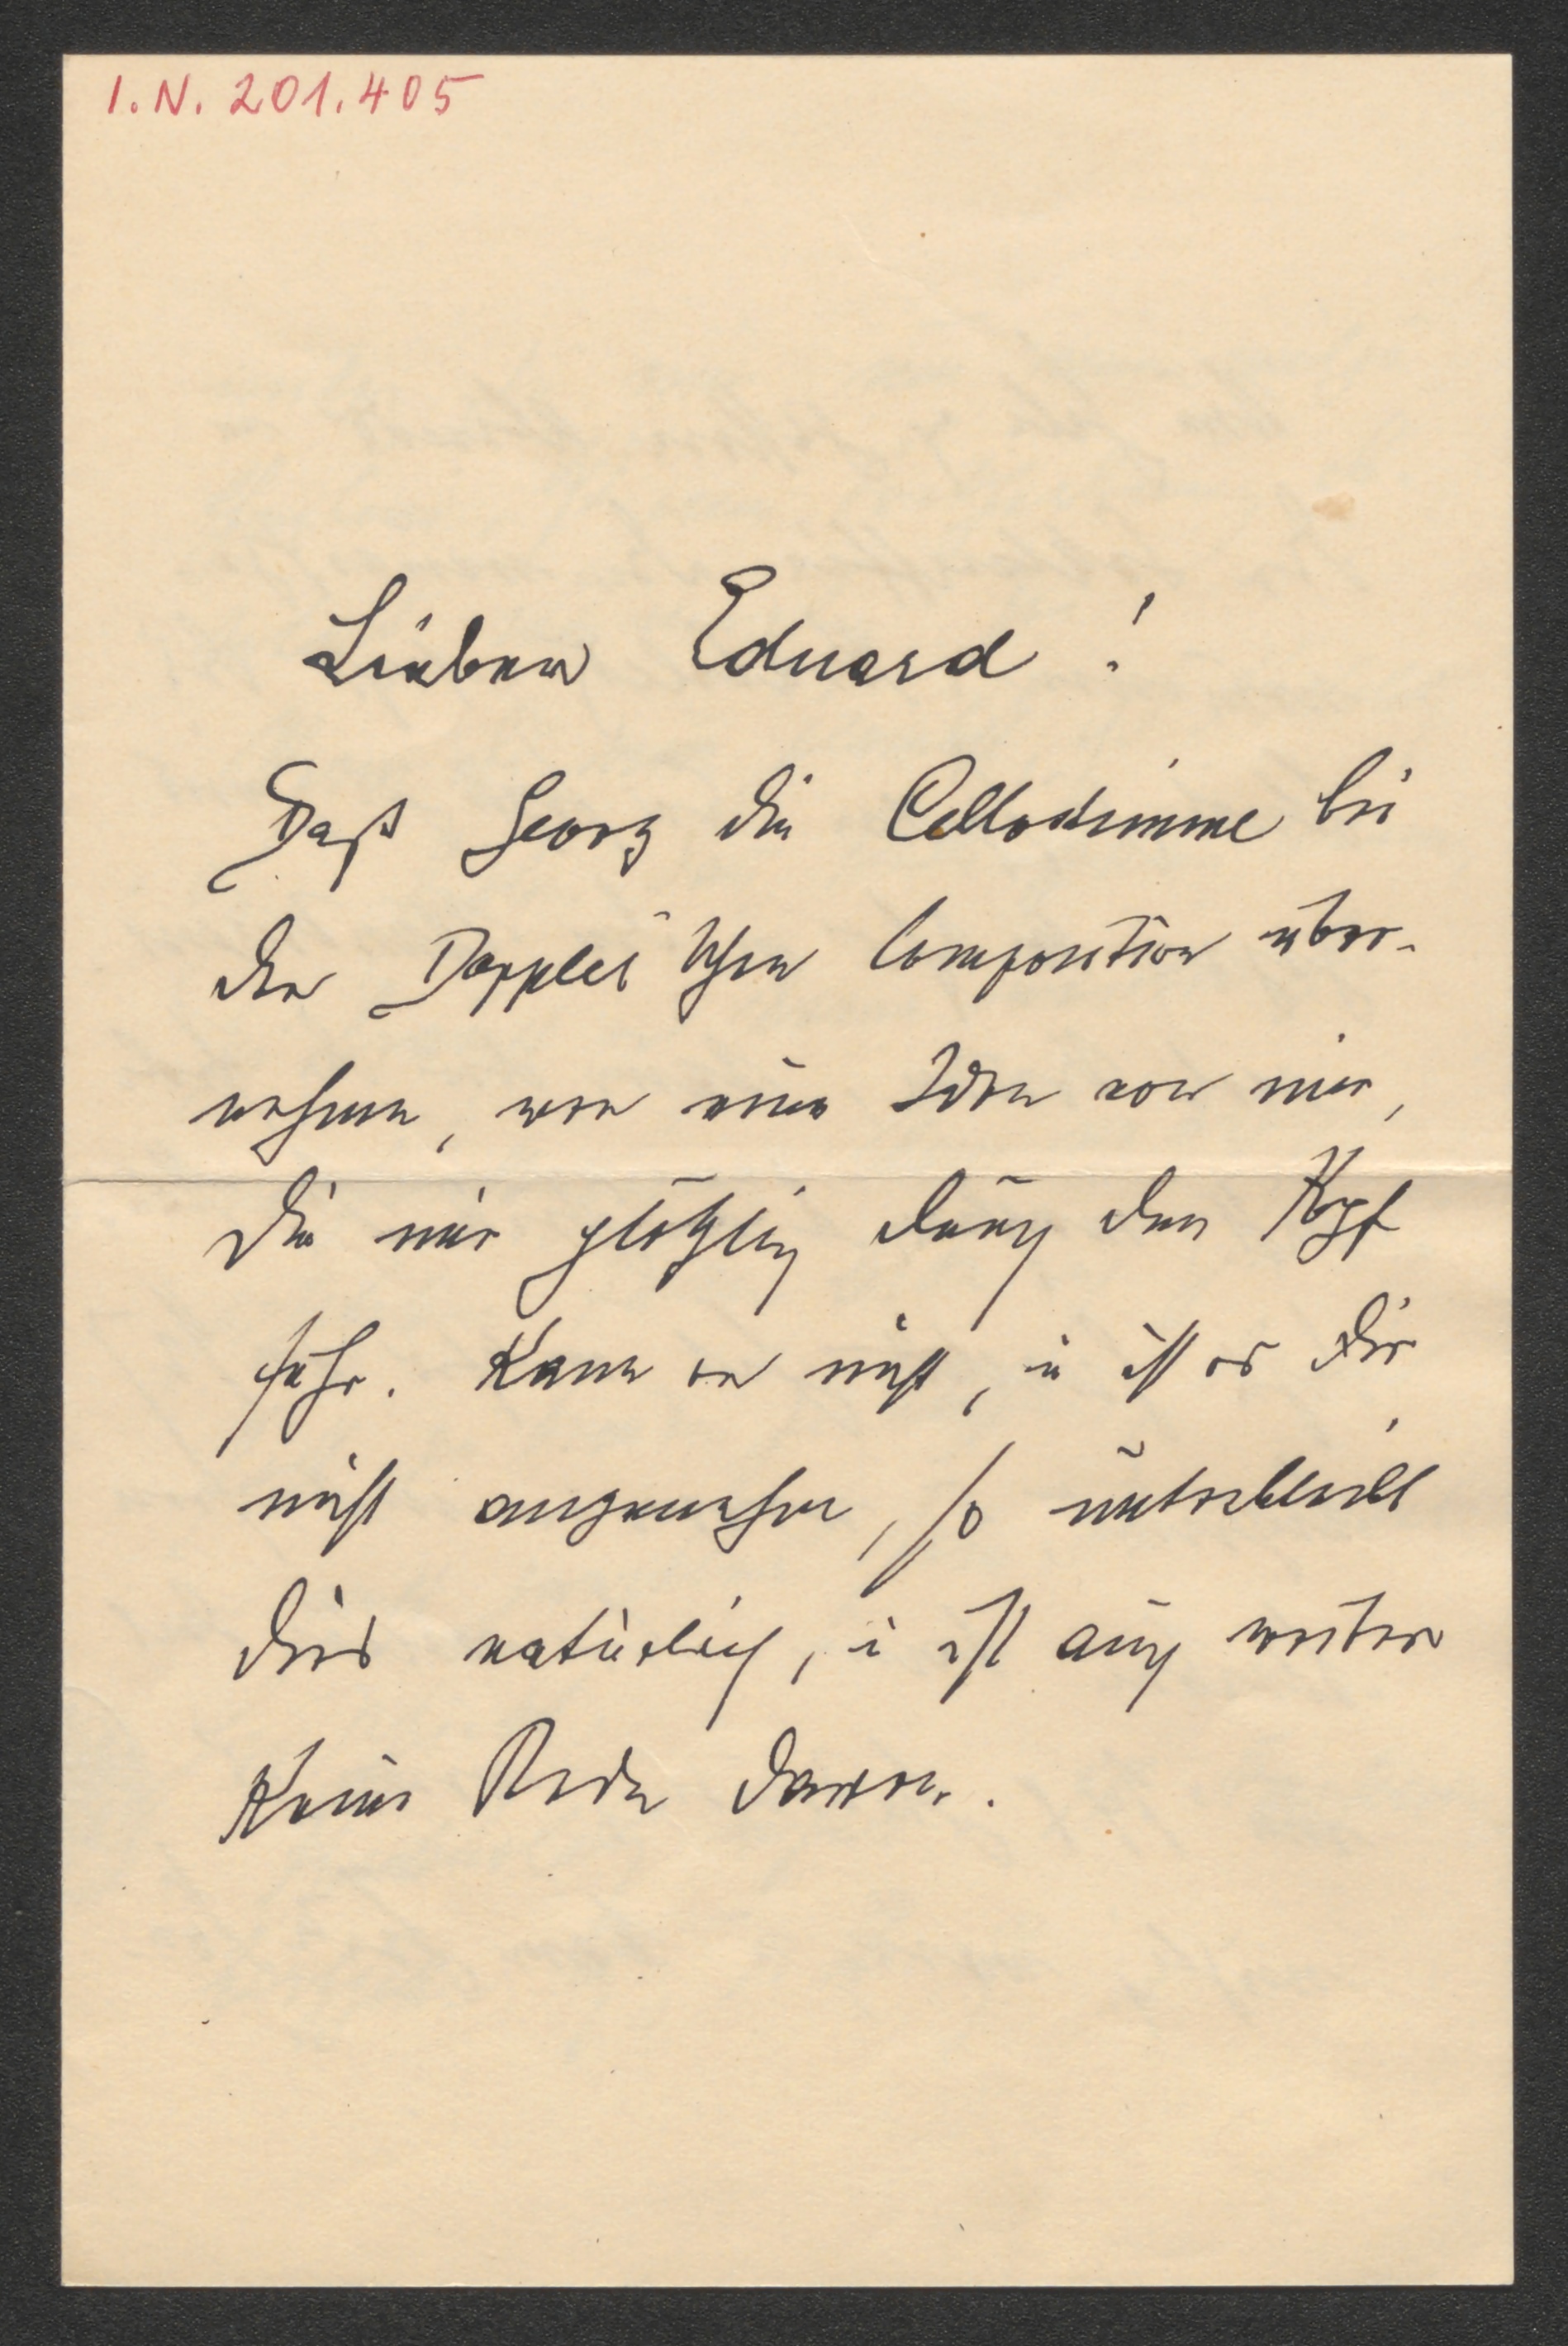 I.N. 201.405
Lieber Eduard!
Daß Georg die Cellostimme bei
der Doppler'schen Composition über-
nehme, war eine Idee von mir,
die mir plötzlich durch den Kopf
fuhr. Kann er nicht, u ist es dir
nicht angenehm, so unterbleibt
dies natürlich, u ist auch weiter
keine Rede davon.